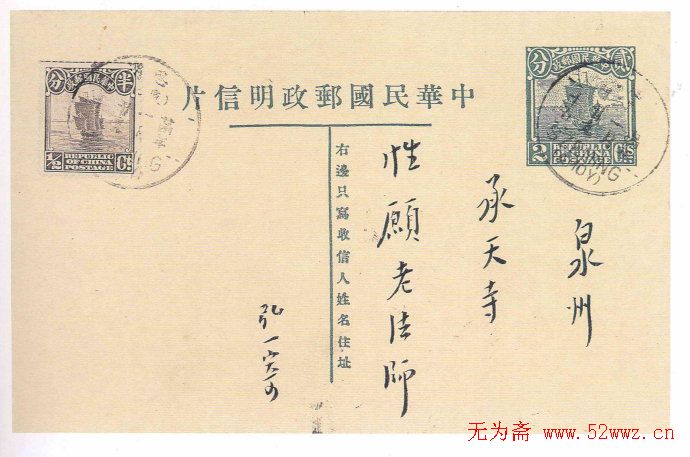 中華民國郵政明信片
右邊只寫收信人姓名住址
泉州
承天寺
性願老法師
弘一寄
半
分
中華民國郵政
1/2 Cts
REPUBLIC
OF CHINA
POSTAGE
貳
分
中華民國郵政
2 Cts
REPUBLIC
OF CHINA
POSTAGE
无为斋 www.52wwz.cn